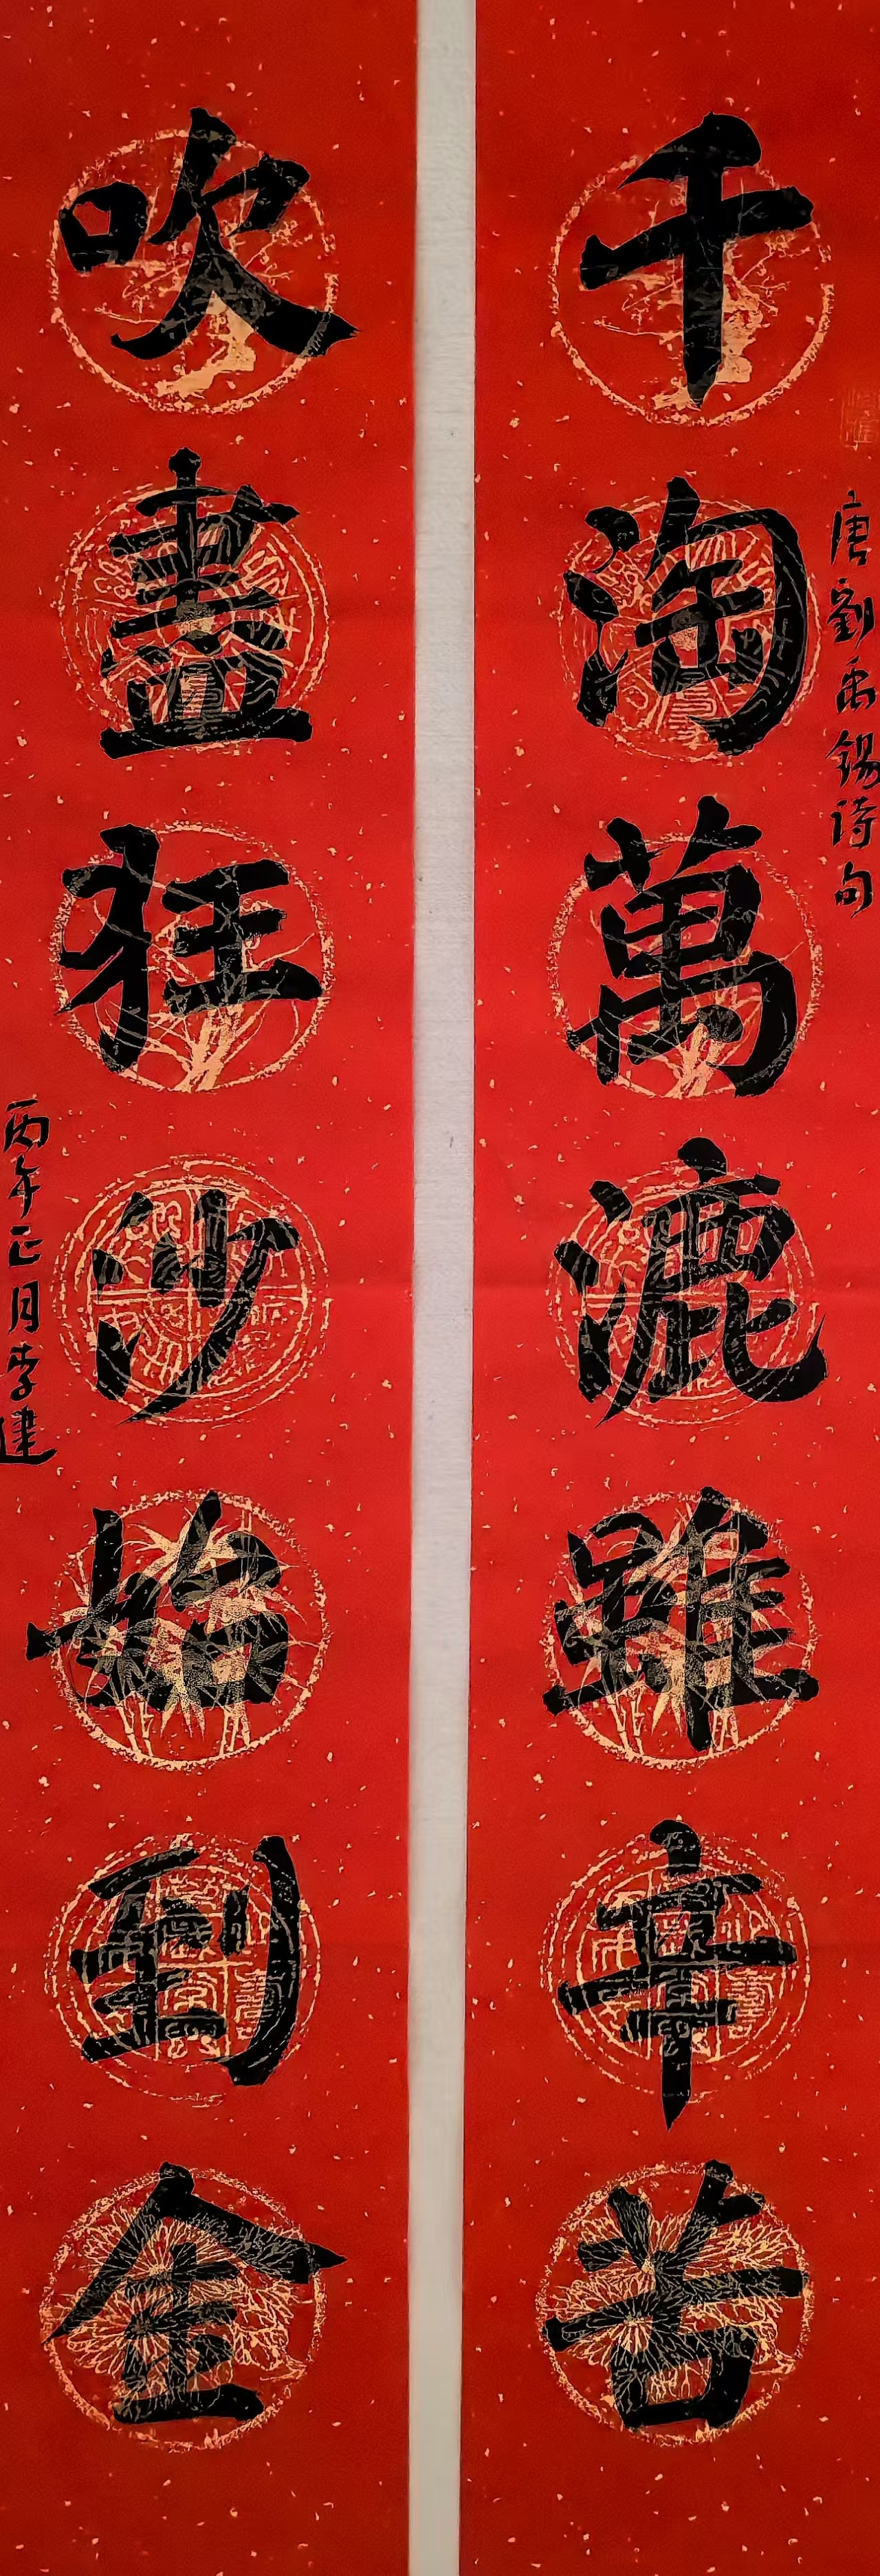 唐劉禹錫诗句
千淘萬漉雖辛苦
吹盡狂沙始到金
丙午正月李建